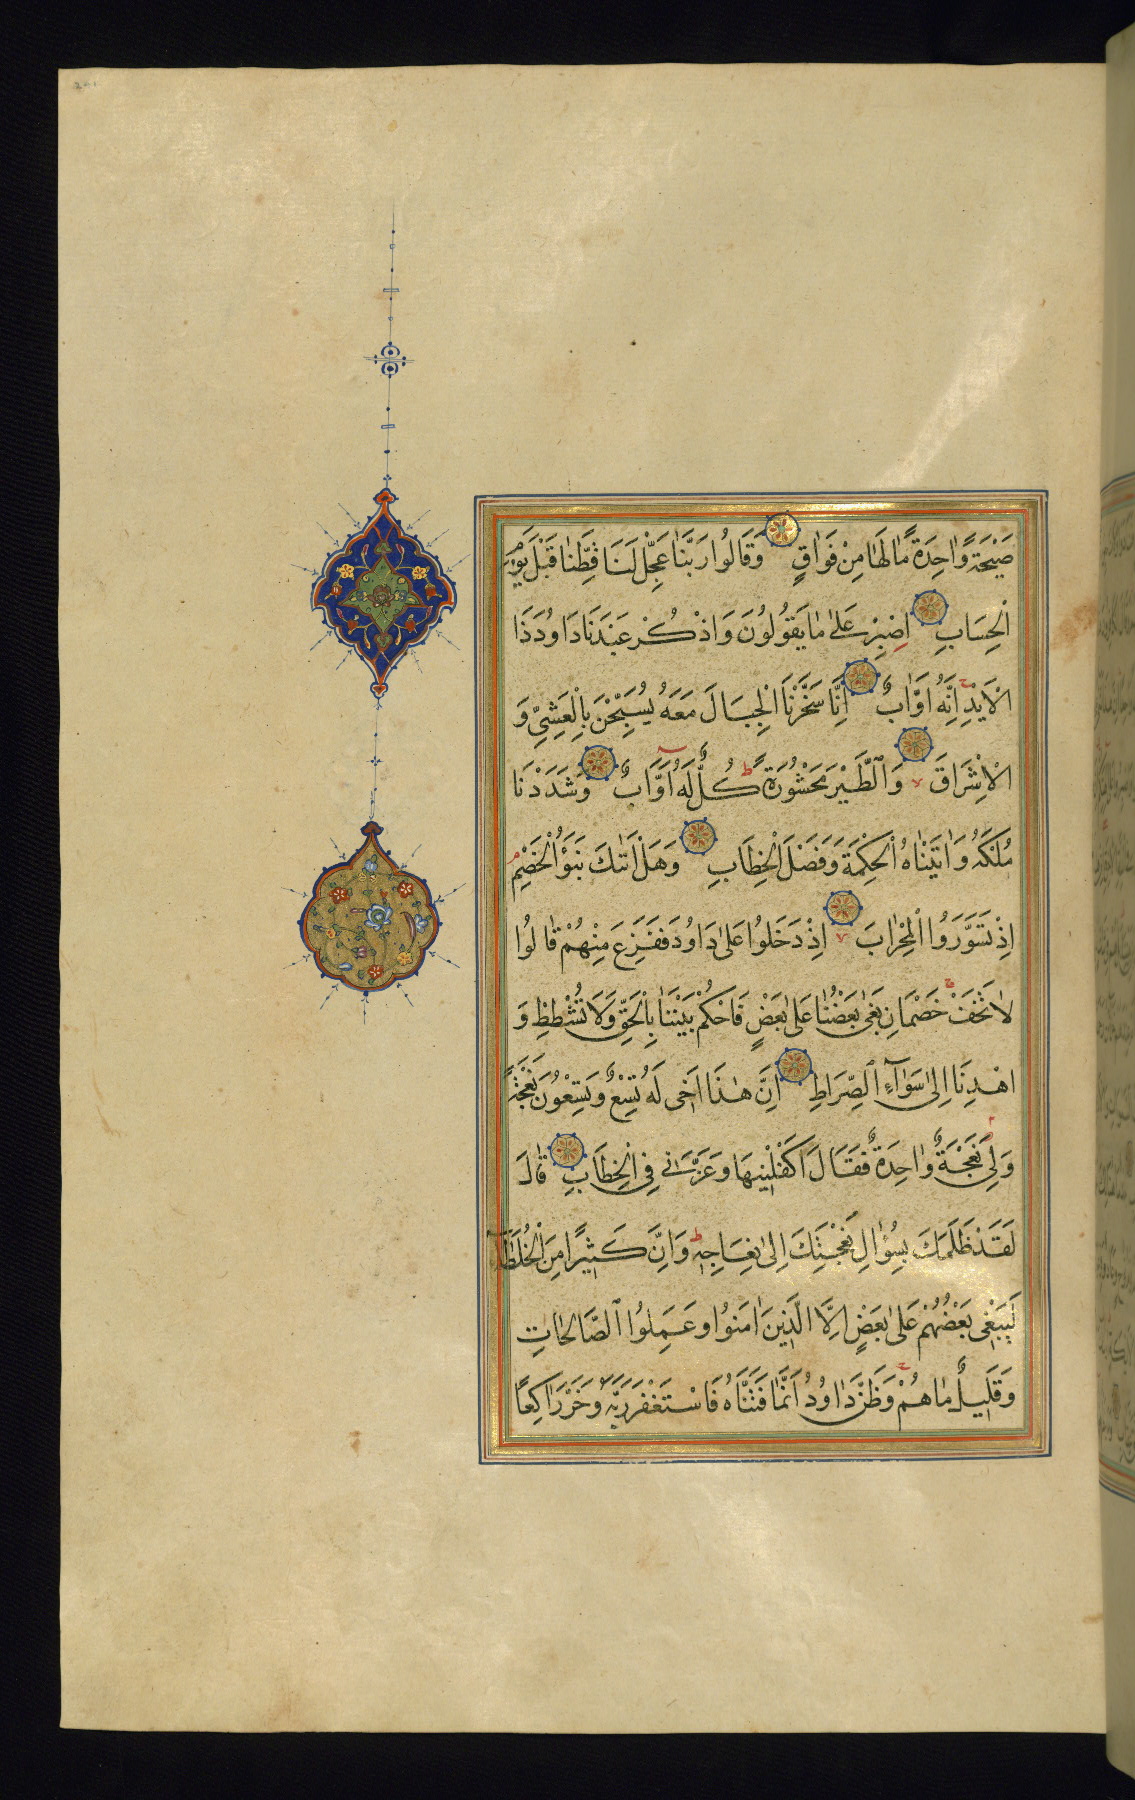 صَيْحَةً وَاحِدَةً مَا لَهَا مِنْ فَوَاقٍ وَقَالُوا رَبَّنَا عَجِّلْ لَنَا قِطَّنَا قَبْلَ يَوْمِ
الْحِسَابِ اِصْبِرْ عَلٰى مَا يَقُولُونَ وَاذْكُرْ عَبْدَنَا دَاوُدَ ذَا
الْاَيْدِ اِنَّهُ اَوَّابٌ اِنَّا سَخَّرْنَا الْجِبَالَ مَعَهُ يُسَبِّحْنَ بِالْعَشِيِّ وَ
الْاِشْرَاقِ وَالطَّيْرَ مَحْشُورَةً كُلٌّ لَهُ اَوَّابٌ وَشَدَدْنَا
مُلْكَهُ وَاٰتَيْنَاهُ الْحِكْمَةَ وَفَصْلَ الْخِطَابِ وَهَلْ اَتٰىكَ نَبَؤُا الْخَصْمِ
اِذْ تَسَوَّرُوا الْمِحْرَابَ اِذْ دَخَلُوا عَلٰى دَاوُدَ فَفَزِعَ مِنْهُمْ قَالُوا
لَا تَخَفْ خَصْمَانِ بَغٰى بَعْضُنَا عَلٰى بَعْضٍ فَاحْكُمْ بَيْنَنَا بِالْحَقِّ وَلَا تُشْطِطْ وَ
اهْدِنَا اِلٰى سَوَآءِ الصِّرَاطِ اِنَّ هٰذَا اَخِى لَهُ تِسْعٌ وَتِسْعُونَ نَعْجَةً
وَلِيَ نَعْجَةٌ وَاحِدَةٌ فَقَالَ اَكْفِلْنِيهَا وَعَزَّنِى فِى الْخِطَابِ قَالَ
لَقَدْ ظَلَمَكَ بِسُؤَالِ نَعْجَتِكَ اِلٰى نِعَاجِهِ وَاِنَّ كَثِيرًا مِنَ الْخُلَطَآءِ
لَيَبْغِى بَعْضُهُمْ عَلٰى بَعْضٍ اِلَّا الَّذِينَ اٰمَنُوا وَعَمِلُوا الصَّالِحَاتِ
وَقَلِيلٌ مَا هُمْ وَظَنَّ دَاوُدُ اَنَّمَا فَتَنَّاهُ فَاسْتَغْفَرَ رَبَّهُ وَخَرَّ رَاكِعًا